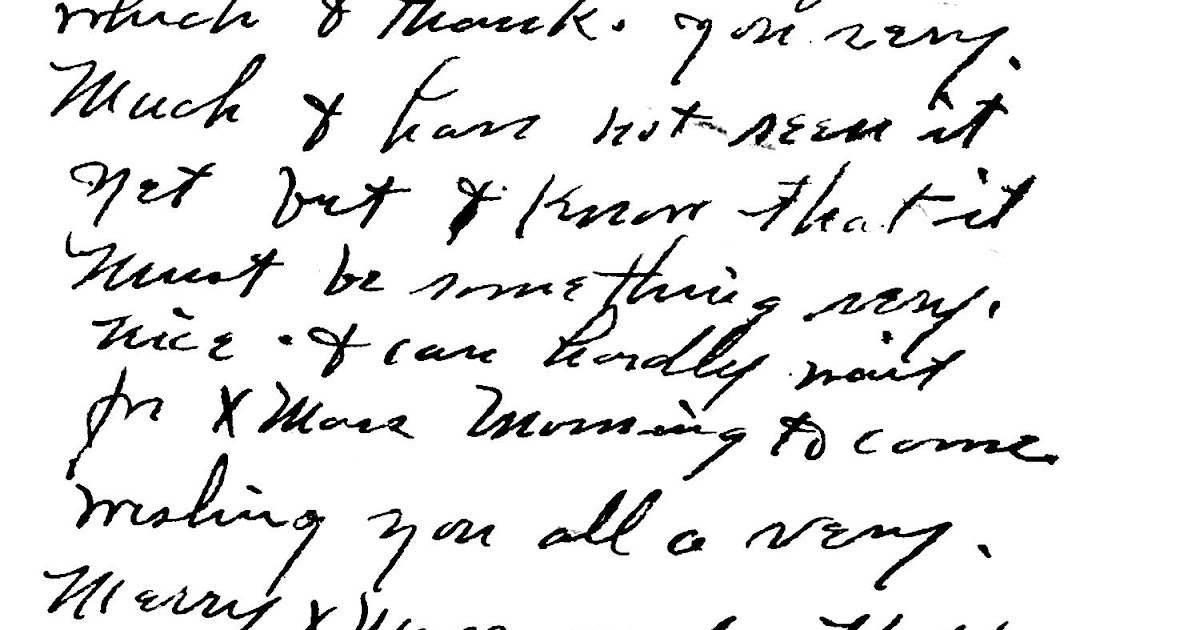 which I thank. you very.
Much I have not seen it
yet but I know that it
must be something very.
nice. I can hardly wait
for XMas Morning to come.
wishing you all a very.
Merry XMas